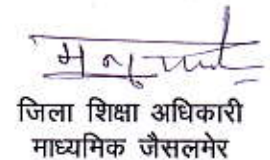 जिला शिक्षा अधिकारी
माध्यमिक जैसलमेर